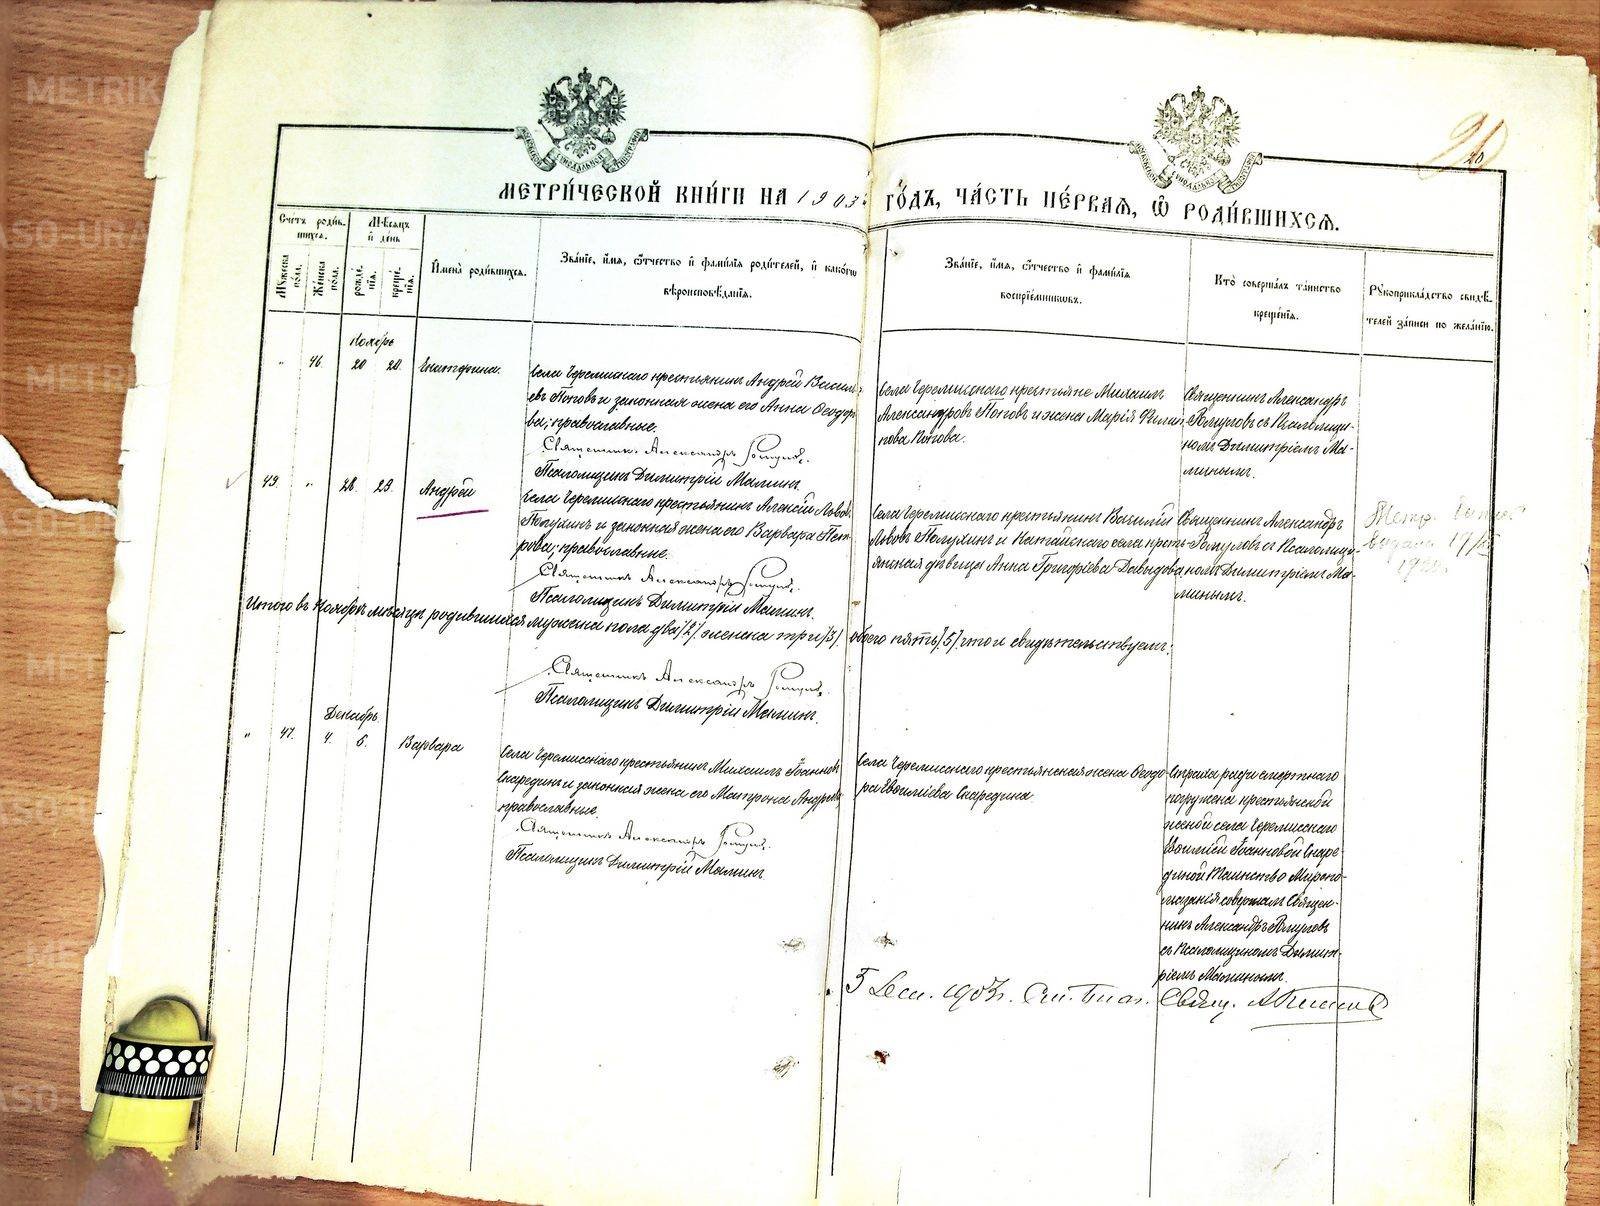 METRIK
ASO-URA
МЕТРИ́ЧЕСКОЙ КНИ́ГИ НА 1903 ГО́ДЪ, ЧА́СТЬ ПЕ́РВАЯ, Ѡ РОДИ́ВШИХСЯ.
20
Счетъ роди́вшихся.
Мѣсяцъ и́ день
Мужеска пола.
Женска пола.
рожденія.
крещенія.
Имена̀ родившихся.
Зва́ніе, и́мя, ѻтчество и́ фами́лія роди́телей, и́ како́гѡ вѣроисповѣ́данія.
Зва́ніе, и́мя, ѻтчество и́ фами́лія воспріе́мниковъ.
Кто̀ соверша́лъ та́инство креще́нія.
Рукоприкла́дство свидѣ́телей за́писи по жела́нію.
Ноябрь
„ 46. 20 20. Екатерина.
Села Черемисскаго крестьянинъ Андрей Василь-
евъ Поповъ и законная жена его Анна Ѳеодоро-
ва; православные.
Священникъ Александръ
Псаломщикъ Димитрій Малинъ.
Села Черемисскаго крестьяне Михаилъ
Александровъ Поповъ и жена Марія Филип-
пова Попова.
Священникъ Александръ
съ Псаломщи-
комъ Димитріемъ Ма-
линымъ.
49. „ 28. 29. Андрей
Села Черемисскаго крестьянинъ Алексій Львовъ
Полухинъ и законная жена его Варвара Пет-
рова; православные.
Священникъ Александръ
Псаломщикъ Димитрій Малинъ.
Села Черемисскаго крестьянинъ Василій
Львовъ Полухинъ и Катайскаго села кресть-
янская дѣвица Анна Григоріева Давыдова
Священникъ Александръ
съ Псаломщи-
комъ Димитріемъ Ма-
линымъ.
Метр.
выдана 19
Итого въ Ноябрѣ мѣсяцѣ родившихся мужска пола два /2/ женска три /3/. обоего пять /5/. что и свидѣтельствуемъ:
Священникъ Александръ
Псаломщикъ Димитрій Малинъ.
Декабрь
„ 47. 4. 5. Варвара
Села Черемисскаго крестьянинъ Михаилъ Іоанновъ
Скарединъ и законная жена его Матрона Андреева
православные.
Священникъ Александръ
Псаломщикъ Димитрій Малинъ.
Села Черемисскаго крестьянская жена Ѳеодо-
ра Скаредина.
Страха ради смертнаго
погружена крестьянской
женой села Черемисскаго
Іоанновой Скаре-
диной Таинство Миропо-
мазанія совершалъ Священ-
никъ Александръ
съ Псаломщикомъ Димит-
ріемъ Малинымъ.
5 Дек. 1903 г. Свящ.